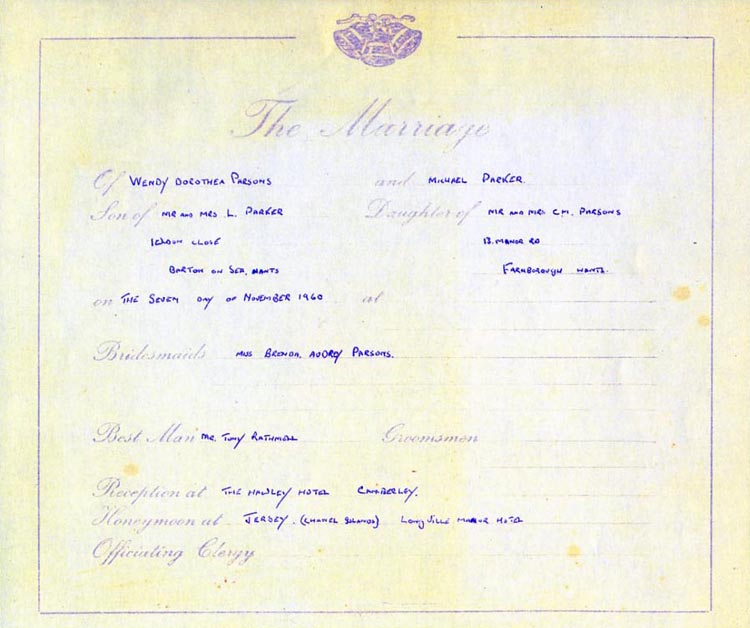 The Marriage
Of WENDY DOROTHEA PARSONS and MICHAEL PARKER.
Son of MR AND MRS L. PARKER Daughter of MR AND MRS C.M. PARSONS
CLOSE 13. MANOR RD
BARTON ON SEA, HANTS FARNBOROUGH HANTS.
on THE SEVEN DAY OF NOVEMBER 1960 at
Bridesmaids MISS BRENDA AUDREY PARSONS.
Best Man MR. TONY RATHMELL Groomsmen
Reception at THE HAWLEY HOTEL CAMBERLEY.
Honeymoon at JERSEY. (CHANEL ISLANDS) LONGVILLE MANOR HOTEL
Officiating Clergy